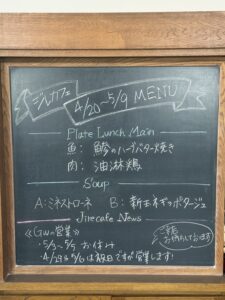 ジルカフェ
4/20〜5/9 MENU
Plate Lunch Main
魚：鯵のハーブバター焼き
肉：油淋鶏
Soup
A：ミネストローネ B：新玉ネギのポタージュ
Jirecafe News
《GWの営業》
・5/3〜5/5 お休み
・4/29 5/6は祝日ですが営業します！
ご来店お待ちしております